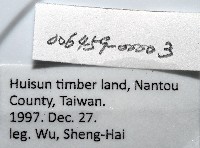 006459-00003
Huisun timber land, Nantou
County, Taiwan.
1997. Dec. 27.
leg. Wu, Sheng-Hai